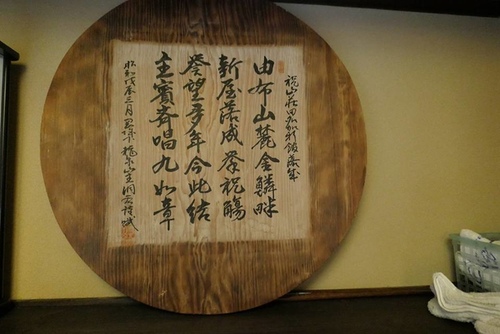 祝山荘田加新館落成
由布山麓金鱗畔
新屋落成挙祝觴
登望多年今此結
主賓斉唱九如章
昭和戊辰三月